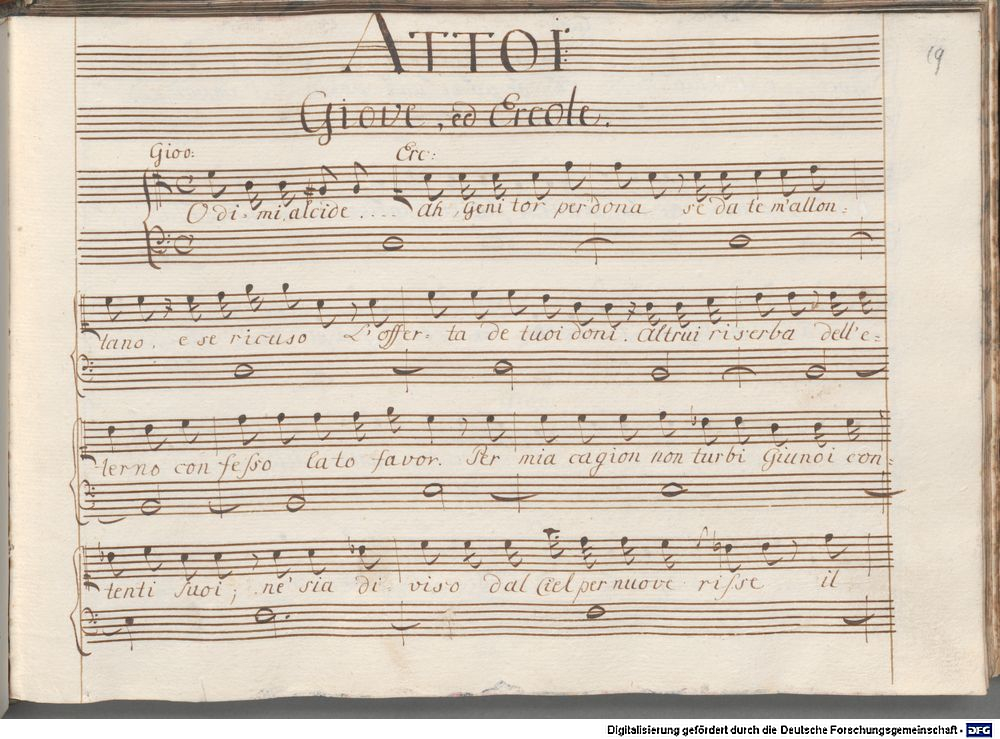 19
ATTO I
Giove, ed Ercole.
Giov: Erc:
Odi-mi, alcide .... ah, Genitor perdona se da te m'allon:
tano. e se ricuso L'offer-ta de tuoi doni. Altrui riserba dell'e-
terno confesso lato favor. Per mia cagion non turbi Giunoi con-
tenti suoi; ne' sia di-viso dal Ciel per nuove risse il
Digitalisierung gefördert durch die Deutsche Forschungsgemeinschaft - DFG